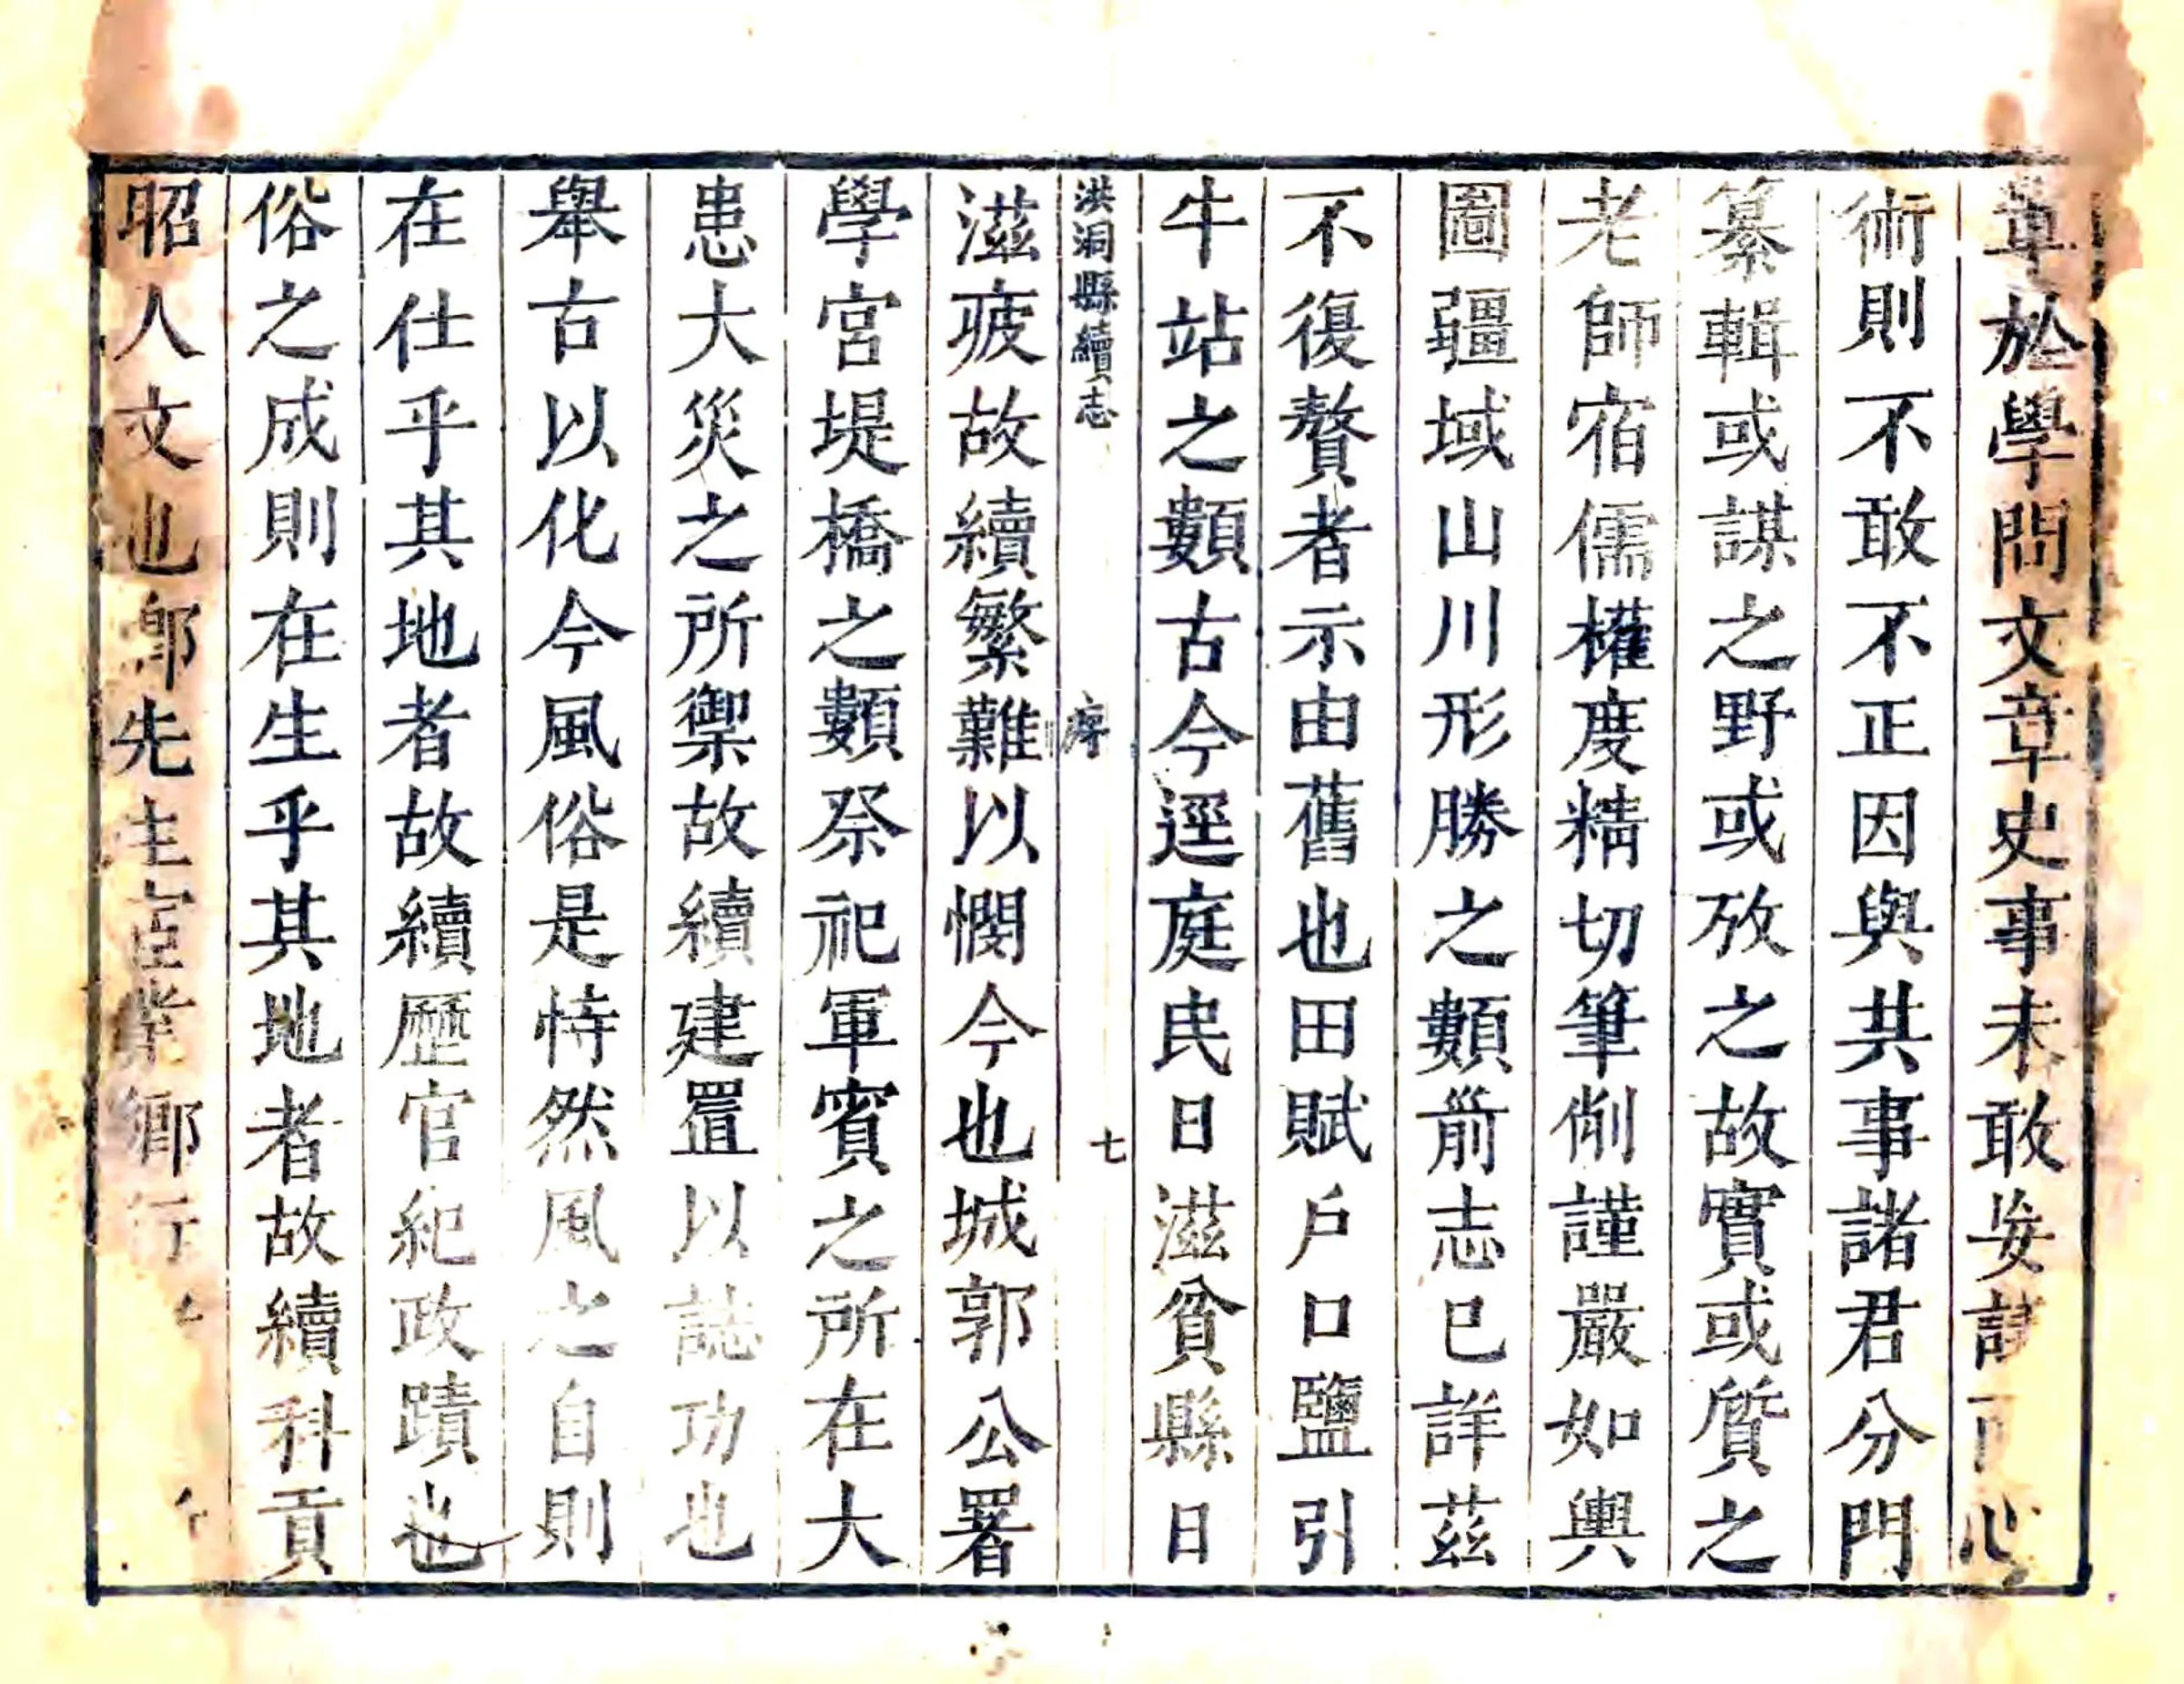 章於學問文章史事未敢妄議而心
術則不敢不正因與共事諸君分門
纂輯或謀之野或攷之故實或質之
老師宿儒權度精切筆削謹嚴如輿
圖疆域山川形勝之類前志已詳茲
不復贅者示由舊也田賦戶口鹽引
牛站之類古今逕庭民日滋貧縣日
洪洞縣續志 序 七
滋疲故續繁難以憫今也城郭公署
學宮堤橋之類祭祀軍賓之所在大
患大災之所禦故續建置以誌功也
舉古以化今風俗是恃然風之自則
在仕乎其地者故續歷官紀政蹟也
俗之成則在生乎其地者故續科貢
昭人文也鄉先生宦業鄉行